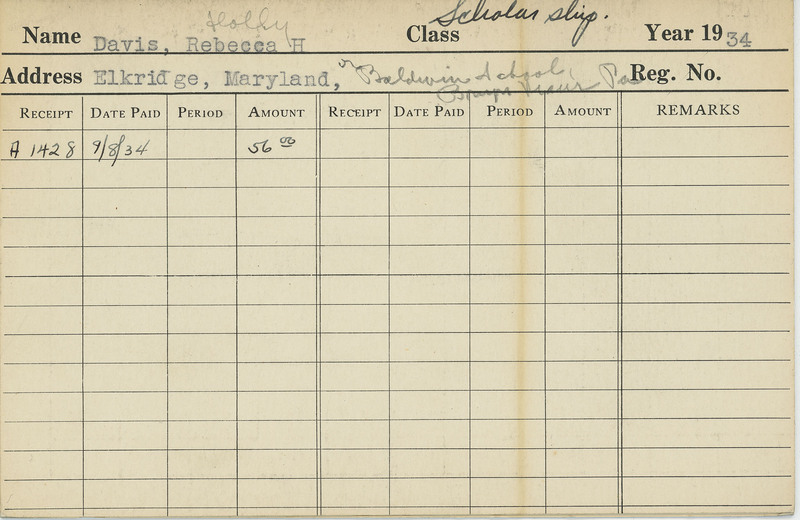 Holly
Name Davis, Rebecca H Class Scholarship. Year 1934
Address Elkridge, Maryland, or Baldwin School, Reg. No.
Bryn Mawr Pa
RECEIPT DATE PAID PERIOD AMOUNT RECEIPT DATE PAID PERIOD AMOUNT REMARKS
A 1428 9/8/34 56 00